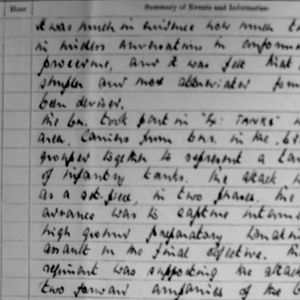 Hour Summary of Events and Information
it was much in evidence how much t
in needless in conform
procedure, and it was felt that
simpler and more abbreviated form
been devised.
The bn. took part in "Ex: TAURUS"
area. Carriers from bns. in the
grouped together to represent a tan
of infantry tanks. The attack w
as a set-piece, in two phases. The
advance was to capture interm
high ground preparatory to launch
assault on the final objective. The
regiment was supporting the attack
two forward companies of the b